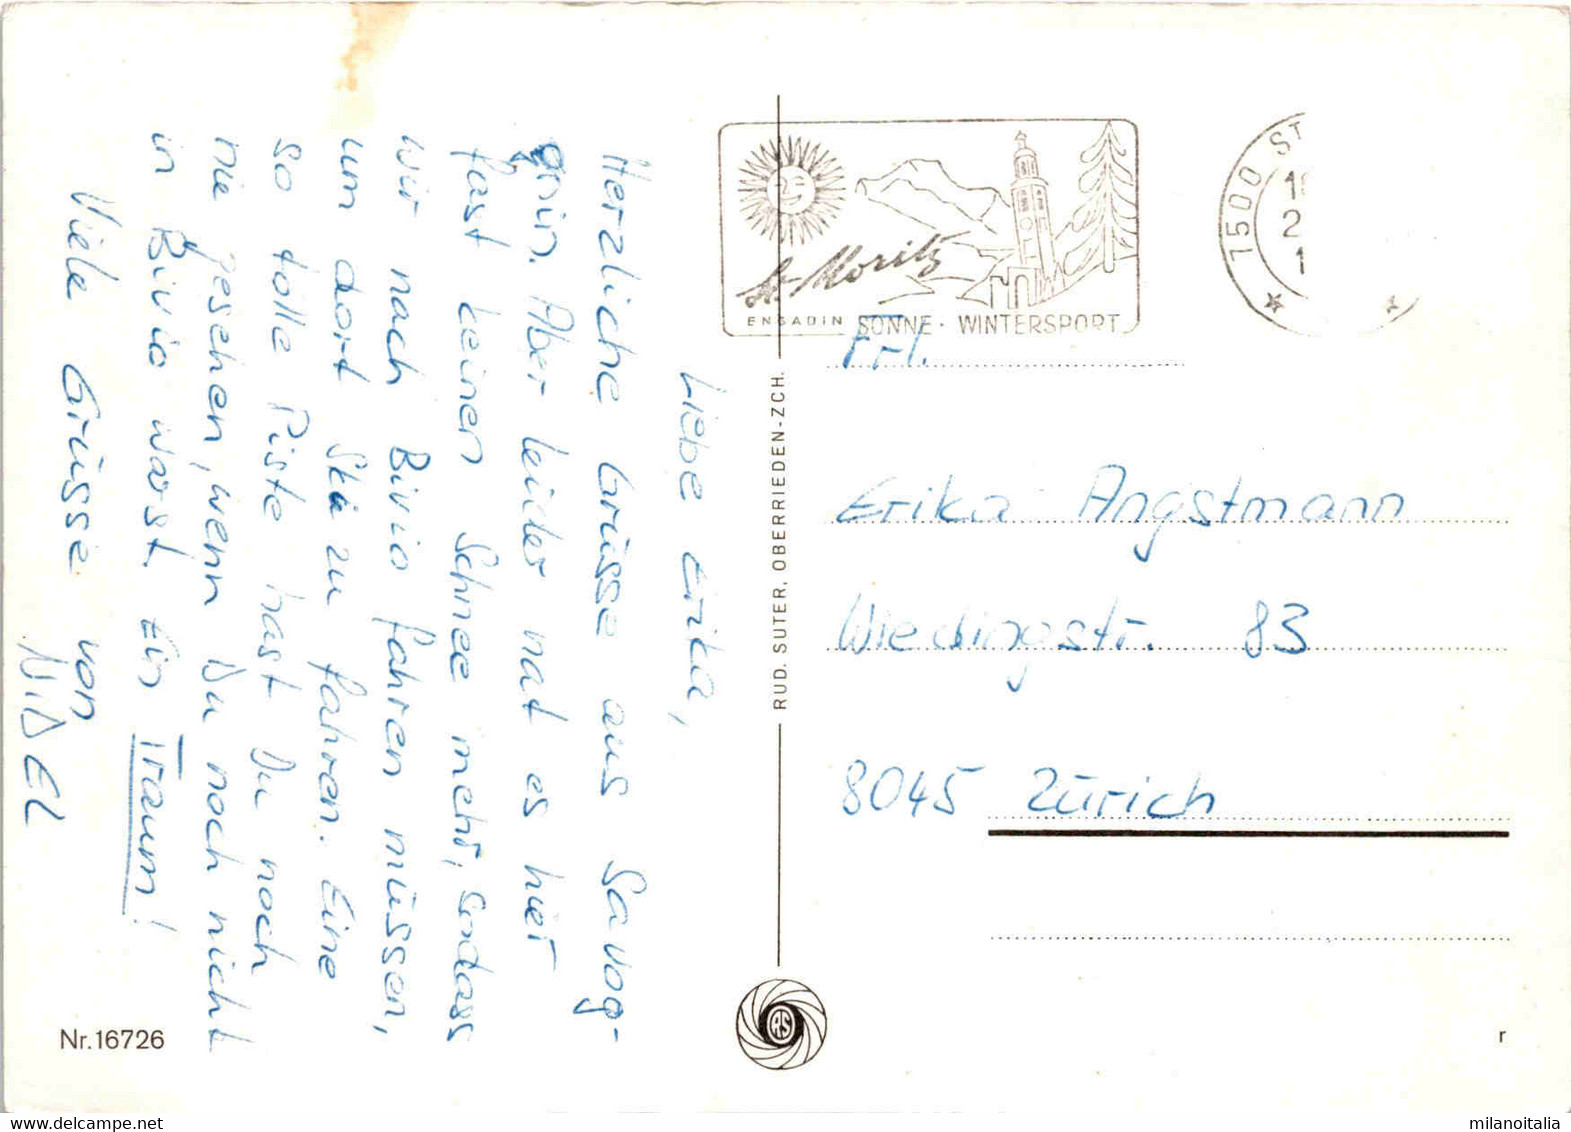 Liebe Erika,
Herzliche Grüsse aus Savog-
gnin. Aber leider hat es hier
fast keinen Schnee mehr, sodass
wir nach Bivio fahren müssen,
um dort Ski zu fahren. Eine
so tolle Piste hast Du noch
nie gesehen, wenn Du noch nicht
in Bivio warst. Ein Traum!
Viele Grüsse von
Nr. 16726
RUD. SUTER, OBERRIEDEN-ZCH.
RS
St. Moritz
ENGADIN SONNE · WINTERSPORT
7500 ST
Frl.
Erika Angstmann
Wiedingstr. 83
8045 Zürich
r
milanoitalia